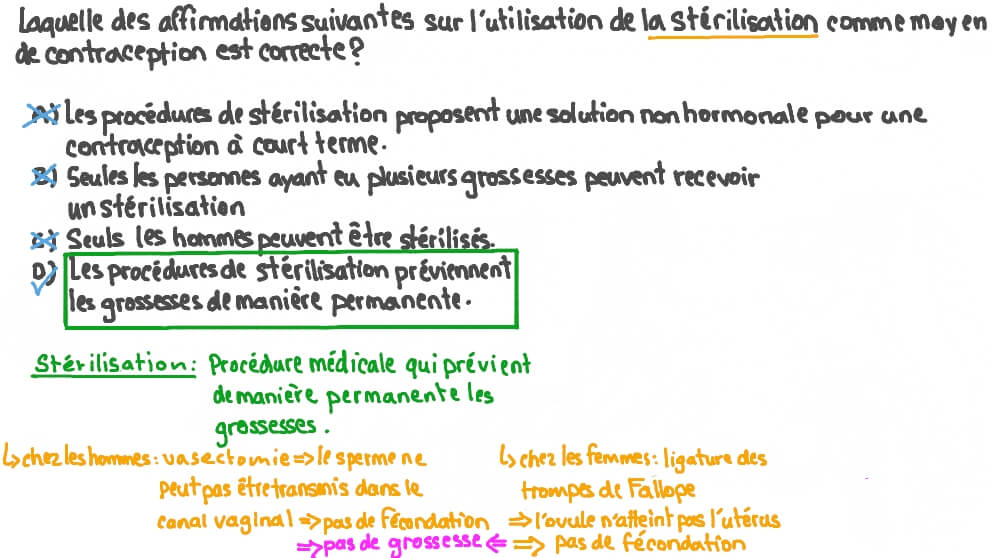 Laquelle des affirmations suivantes sur l'utilisation de la stérilisation comme moyen
de contraception est correcte?
A) Les procédures de stérilisation proposent une solution non hormonale pour une
contraception à court terme.
B) Seules les personnes ayant eu plusieurs grossesses peuvent recevoir
un stérilisation
C) Seuls les hommes peuvent être stérilisés.
D) Les procédures de stérilisation préviennent
les grossesses de manière permanente.
Stérilisation: Procédure médicale qui prévient
de manière permanente les
grossesses.
↳ chez les hommes: vasectomie => le sperme ne
peut pas être transmis dans le
canal vaginal => pas de fécondation
↳ chez les femmes: ligature des
trompes de Fallope
=> l'ovule n'atteint pas l'utérus
=> pas de grossesse <= => pas de fécondation